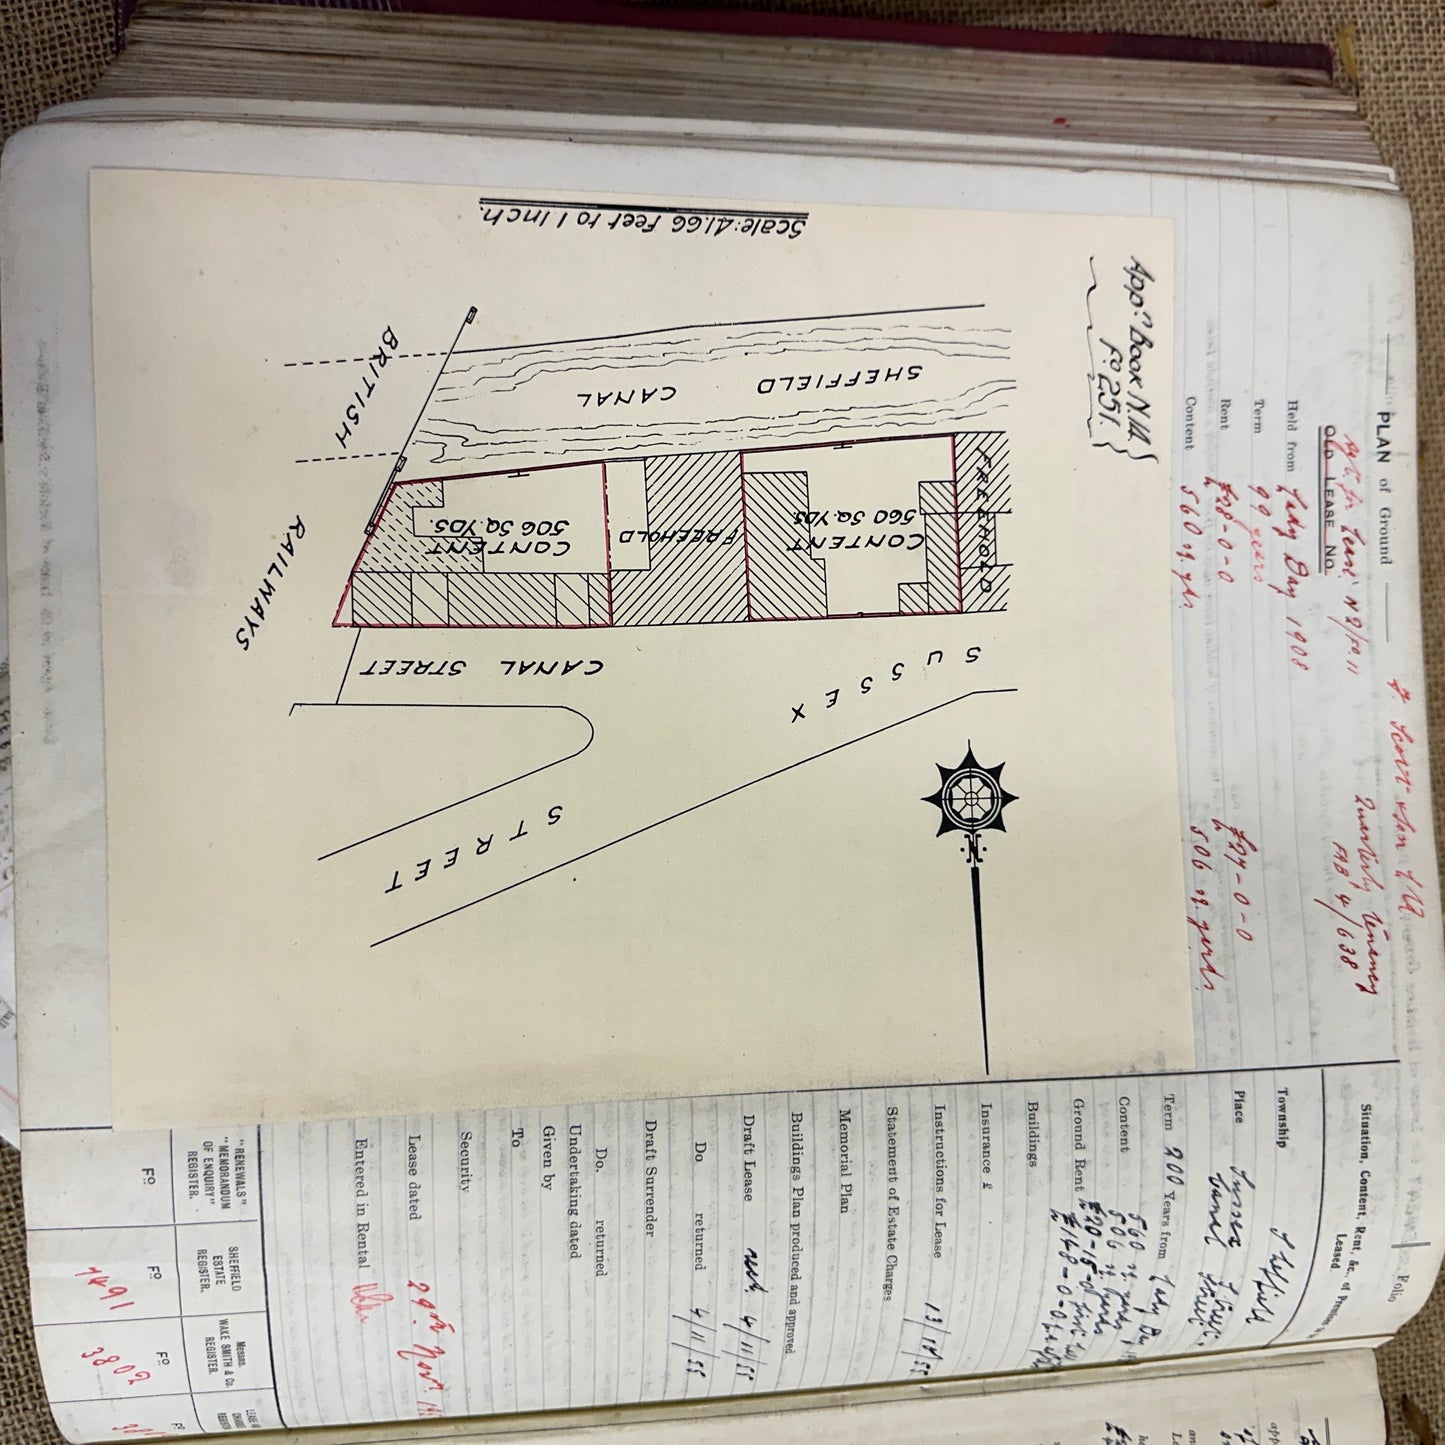 PLAN of Ground
OLD LEASE NO.
Quarterly Tenancy
Held from Lady Day 1908
Term 99 years
Rent £28-0-0
£27-0-0
Content 560 sq. yds
506 sq. yards
Appn. Book N.11.
Fo. 251.
Scale: 41.66 Feet to 1 Inch.
BRITISH
RAILWAYS
SHEFFIELD CANAL
FREEHOLD
CONTENT
560 SQ.YDS
FREEHOLD
CONTENT
506 SQ.YDS.
CANAL STREET
SUSSEX
STREET
N
Folio
Situation, Content, Rent, &c., of Premises
Leased
Township Sheffield
Place Sussex Street
Canal Street
Term 200 Years from Lady Day
Content 560 sq. yards
506 sq. yards
Ground Rent
Buildings
Insurance £
Instructions for Lease
Statement of Estate Charges
Memorial Plan
Buildings Plan produced and approved
Draft Lease 4/11/55
Do returned 4/11/55
Draft Surrender
Do. returned
Undertaking dated
Given by
To
Security
Lease dated 29th Novr.
Entered in Rental
"RENEWALS"
"MEMORANDUM
OF ENQUIRY"
REGISTER.
SHEFFIELD
ESTATE
REGISTER.
MESSRS.
WAKE SMITH & CO.
REGISTER.
Fo
Fo 1491
Fo 3802
Fo